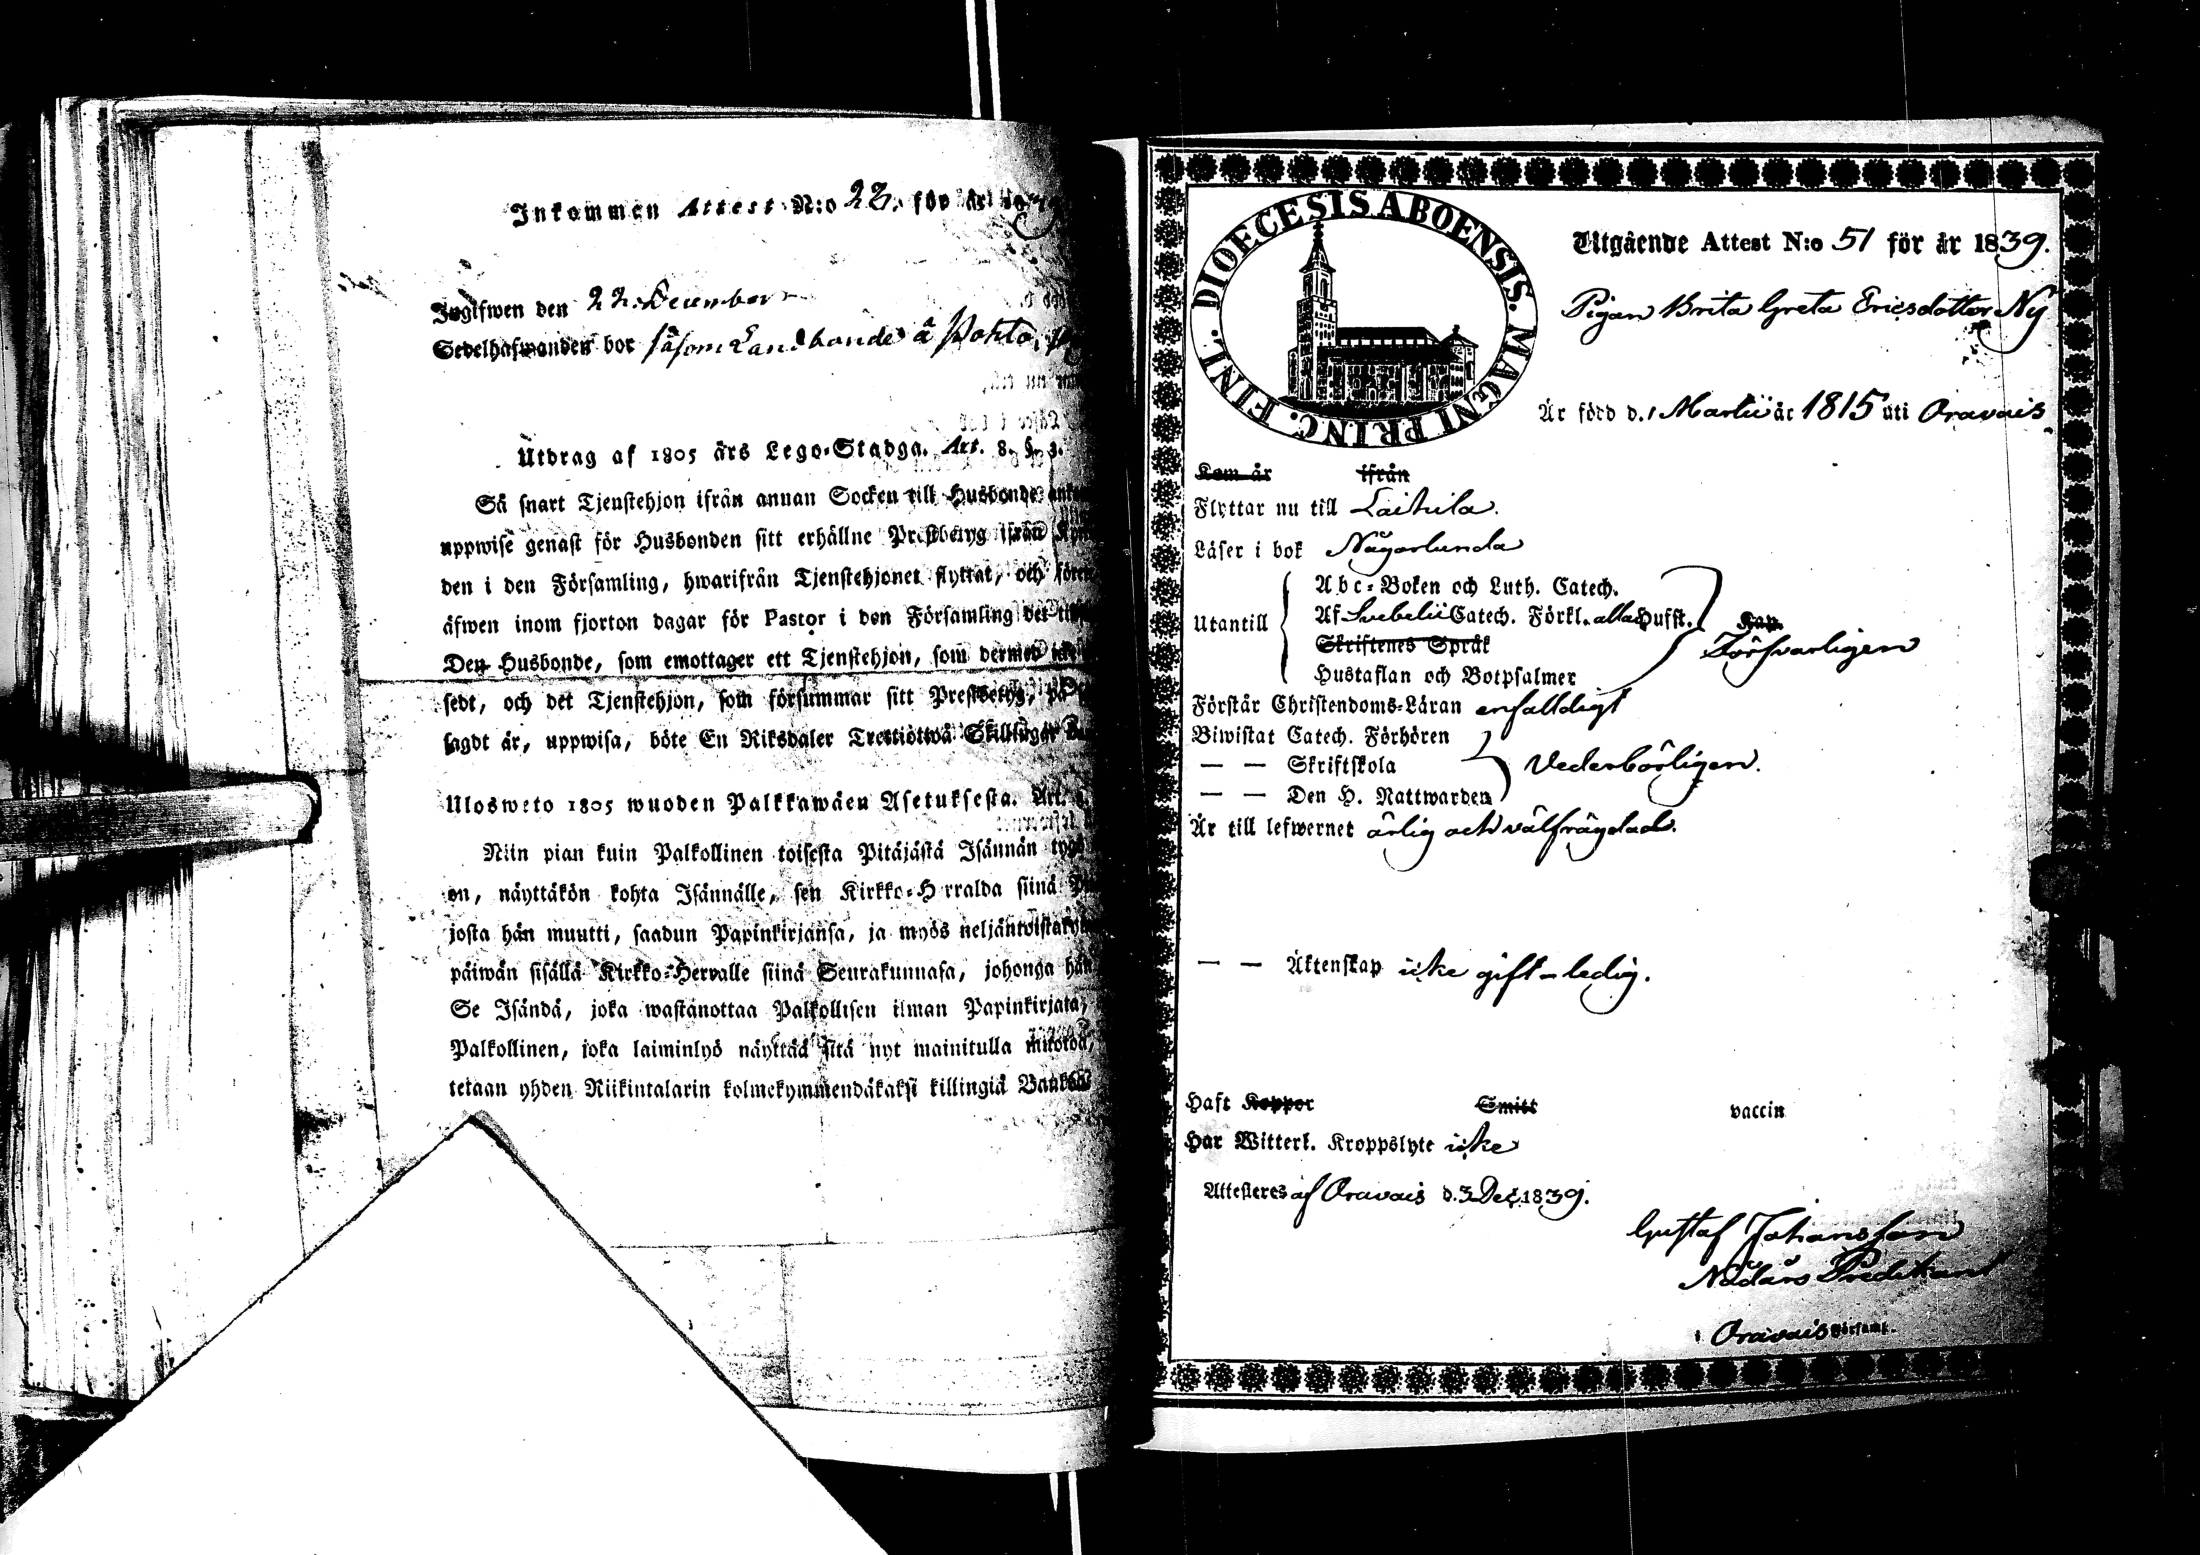 Inkommen Attest N:o 22. för år
Ingifwen den 22. December
Sedelhafwanden bor såsom Landbonde å Pohto,
Utdrag af 1805 års Lego-Stadga. Art. 8. §. 3.
Så snart Tjenstehjon ifrån annan Socken till Husbonde
uppwise genast för Husbonden sitt erhållne Prestbetyg ifrån
den i den Församling, hwarifrån Tjenstehjonet flyttat, och
äfwen inom fjorton dagar för Pastor i den Församling det
Den Husbonde, som emottager ett Tjenstehjon, som dermed
sedt, och det Tjenstehjon, som försummar sitt Prestbetyg, på
sagdt är, uppwisa, böte En Riksdaler Trettiötwå Skillingar
Ulosweto 1805 wuoden Palkkawäen Asetuksesta. Art.
Niin pian kuin Palkollinen toisesta Pitäjästä Isännän
on, näyttäkön kohta Isännälle, sen Kirkko-Herralda siinä
josta hän muutti, saadun Papinkirjansa, ja myös
päiwän sisällä Kirkko-Herralle siinä Seurakunnasa, johonga hän
Se Isändä, joka wastanottaa Palkollisen ilman Papinkirjata,
Palkollinen, joka laiminlyö näyttää sitä nyt mainitulla muotoa,
tetaan yhden Riikintalarin kolmekymmendäkaksi killingiä
DIOECESIS ABOENSIS. MAGNI PRINC. FINL.
Utgående Attest N:o 51 för år 1839.
Pigan Brita Greta Ericsdotter Ny
Är född d. 1 Martii år 1815 uti Oravais
Kom år ifrån
Flyttar nu till Laihela.
Läser i bok Någorlunda
Abc-Boken och Luth. Catech.
Utantill Af Svebelii Catech. Förkl. alla Hufst. Kap.
Skriftenes Språk Försvarligen
Hustaflan och Botpsalmer
Förstår Christendoms-Läran enfalldigt
Biwistat Catech. Förhören
— — Skriftskola Vederbörligen.
— — Den H. Nattwarden
Är till lefwernet ärlig och välfrägdad.
— — Äktenskap icke gift - ledig.
Haft Koppor Smitt vaccin
Har Witterl. Kroppslyte icke
Attesteres af Oravais d. 3 Dec. 1839.
Gustaf Johansson
Nådårs Predikant
i Oravais Församl.